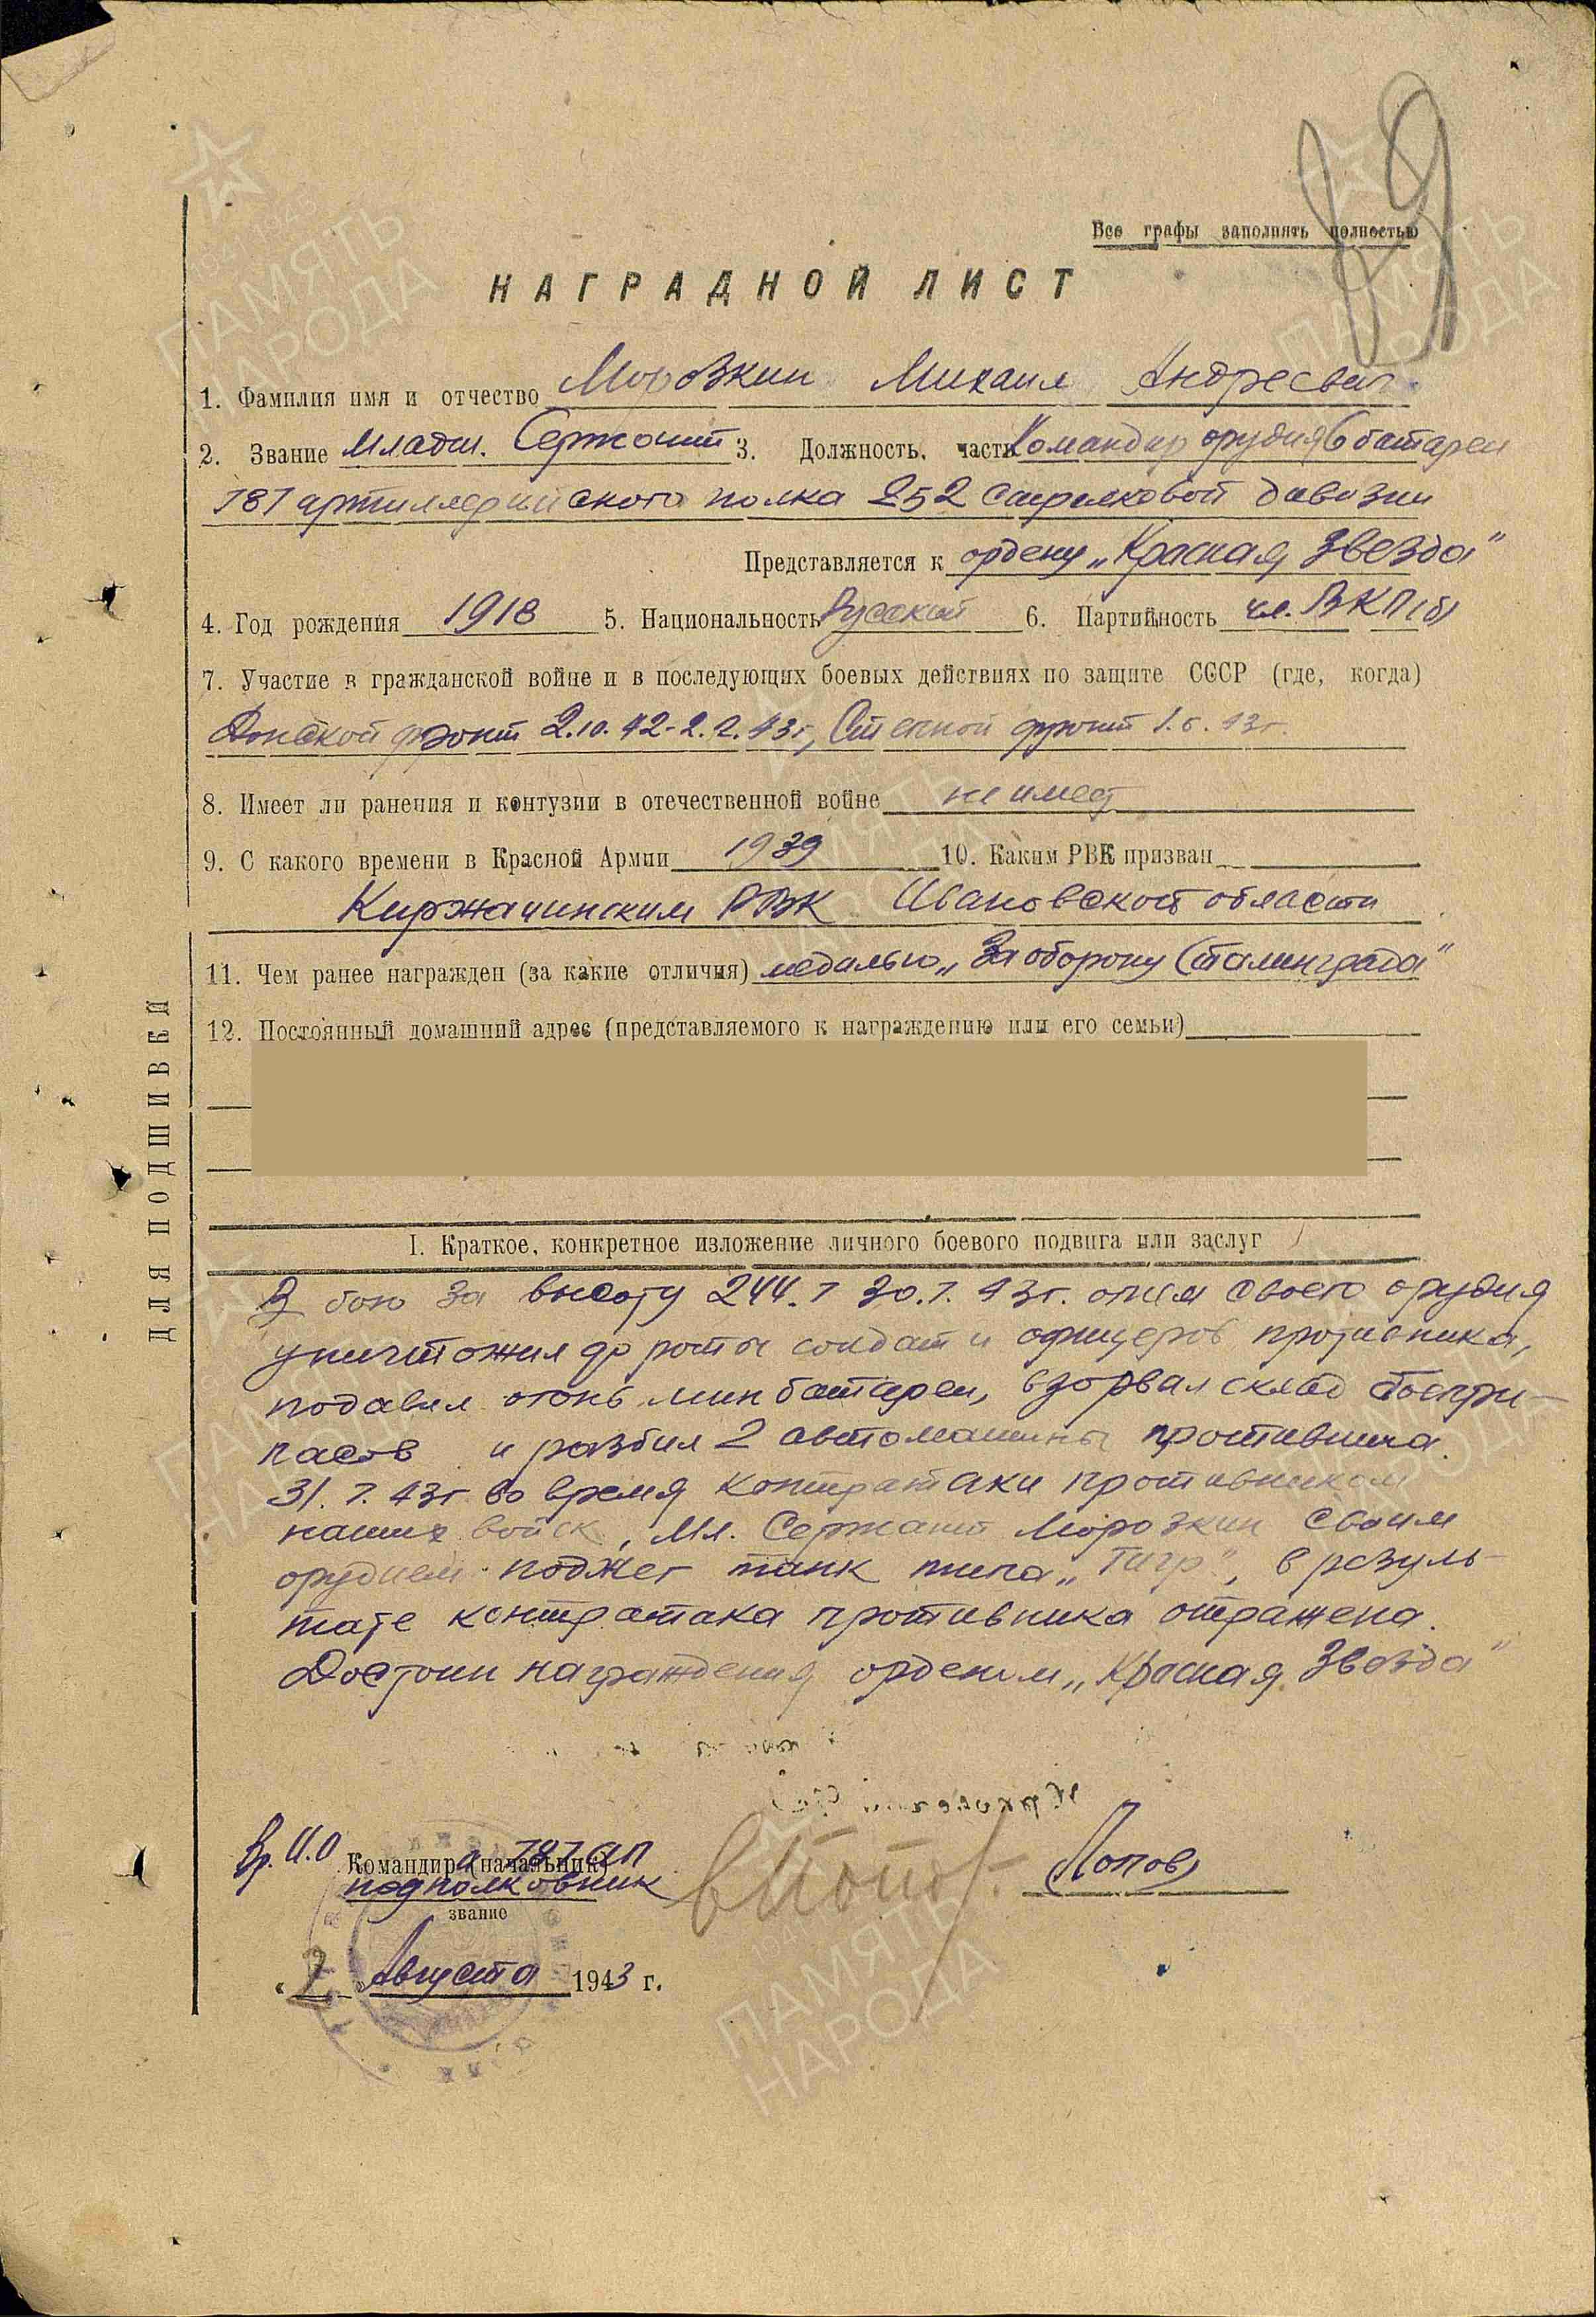 89
Все графы заполнять полностью
НАГРАДНОЙ ЛИСТ
1. Фамилия имя и отчество Морозкин Михаил Андреевич
2. Звание Младш. Сержант 3. Должность, часть Командир орудия 6 батареи
787 артиллерийского полка 252 стрелковой дивизии
Представляется к ордену „Красная Звезда"
4. Год рождения 1918 5. Национальность Русский 6. Партийность чл. ВКП(б)
7. Участие в гражданской войне и в последующих боевых действиях по защите СССР (где, когда)
Донской фронт 2.10.42-2.2.43г, Степной фронт
8. Имеет ли ранения и контузии в отечественной войне не имеет
9. С какого времени в Красной Армии 1939 10. Каким РВК призван
Киржачинским РВК Ивановской области
11. Чем ранее награжден (за какие отличия) медалью „За оборону Сталинграда"
12. Постоянный домашний адрес (представляемого к награждению или его семьи)
ДЛЯ ПОДШИВКИ
I. Краткое, конкретное изложение личного боевого подвига или заслуг
В бою за высоту 244.7 30.7.43г. огнем своего орудия
уничтожил до роты солдат и офицеров противника,
подавил огонь мин батареи, взорвал склад боепри-
пасов и разбил 2 автомашины противника.
31.7.43г во время контратаки противником
наших войск, Мл. Сержант Морозкин своим
орудием поджег танк типа „Тигр", в резуль-
тате контратака противника отражена.
Достоин награждения орденом „Красная Звезда"
Вр.И.О Командира (начальник) 787 ап
подполковник Попов
звание
„7" Августа 1943 г.
ПАМЯТЬ
НАРОДА